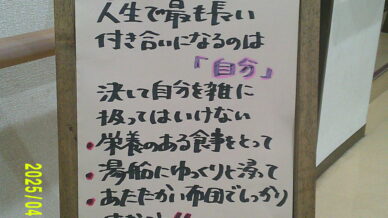 人生で最も長い
付き合いになるのは
「自分」
決して自分を雑に
扱ってはいけない
•栄養のある食事をとって
•湯船にゆっくりと浸って
•あたたかい布団でしっかり
2025/04